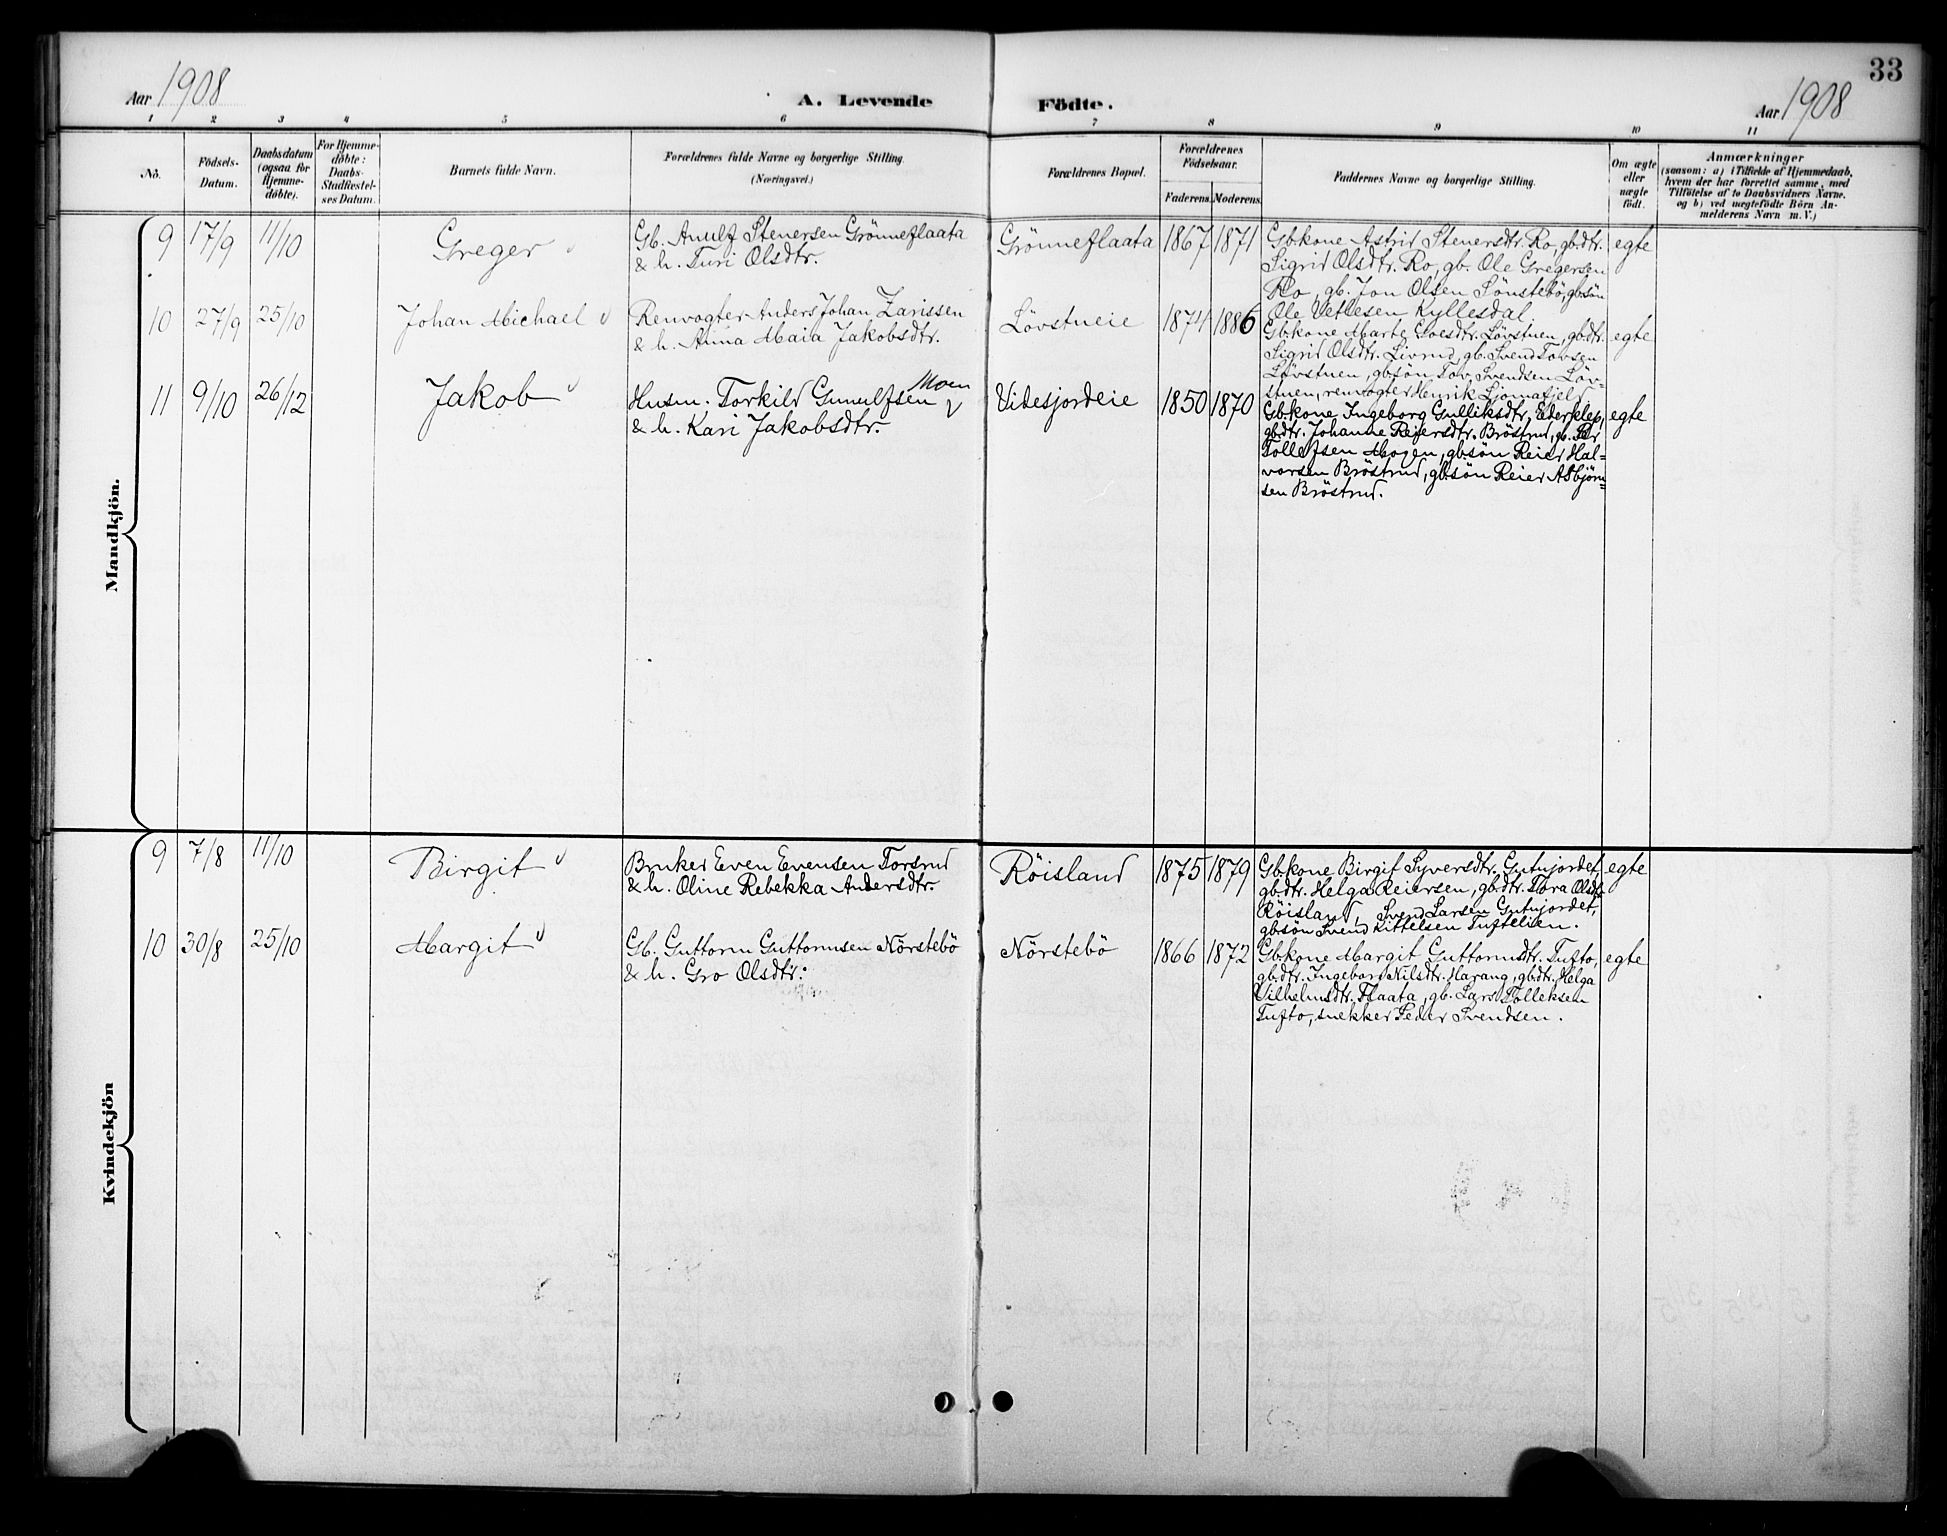 33
Aar 1908
A. Levende
Födte.
Aar 1908
1 2 3 4 5 6 7 8 9 10 11
No.
Födsels-
Datum.
Daabsdatum
(ogsaa for
Hjemme-
døbte).
For Hjemme-
døbte:
Daabs-
Stadfæstel-
ses Datum.
Barnets fulde Navn.
Forældrenes fulde Navne og borgerlige Stilling.
(Næringsvei.)
Forældrenes Bopæl.
Forældrenes
Födselsaar.
Faderens.
Moderens.
Faddernes Navne og borgerlige Stilling.
Om ægte
eller
nægte
födt.
Anmærkninger
(saasom: a) i Tilfælde af Hjemmedaab,
hvem der har forrettet samme, med
Tilföielse af to Daabsvidners Navne.
og b) ved uægtefödte Börn An-
melderens Navn m. V.)
Mandkjön.
9 17/9 11/10 Greger
Gb. Anulf Stenersen Grönneflaata
& h. Turi Olsdtr.
Grönneflaata 1867 1871
Gbkone Astrid Stenersdtr. Ro, gbdtr.
Sigrid Olsdtr. Ro, gb. Ole Gregersen
Ro, gb. Jon Olsen Sönstebö, gbsön
Ole Vetlesen Kyllesdal.
egte
10 27/9 25/10 Johan Michael
Renvogter Anders Johan Zarissen
& h. Anna Maia Jakobsdtr.
Lövstueie 1874 1886
Gbkone Marte Loesdtr. Lövstuen, gbdtr.
Sigrid Olsdtr. Livrud, gb. Svend Tovsen
Lövstuen, gbsön Tov Svendsen Löv-
stuen, renvogter Henrik Ljomafjeld
egte
11 9/10 26/12 Jakob
Husm. Torkild Gunulfsen Moen
& h. Kari Jakobsdtr.
Videsjordeie 1850 1870
Gbkone Ingeborg Gulliksdtr. Ederklep,
gbdtr. Johanne Reiersdtr. Bröstrud, gb. Per
Tollefsen Mogen, gbsön Reier Hal-
vorsen Bröstrud, gbsön Reier Asbjörn-
sen Bröstrud.
egte
Kvindekjön
9 7/8 11/10 Birgit
Bruker Even Evensen Torsrud
& h. Oline Rebekka Andersdtr.
Röisland 1875 1879
Gbkone Birgit Syversdtr. Gutujordet,
gbdtr. Helga Reiersen, gbdtr. Tora Olsdtr
Röisland, Svend Larsen Gutujordet,
gbsön Svend Kittelsen Tuftelien.
egte
10 30/8 25/10 Margit
Gb. Guttorm Guttormsen Nörstebö
& h. Gro Olsdtr.
Nörstebö 1866 1872
Gbkone Margit Guttormsdtr. Tufto,
gbdtr. Ingeborg Nilsdtr. Harang, gbdtr. Helga
Vilhelmsdtr. Flaata, gb. Lars Tolleksen
Tufto, snekker Peder Svendsen.
egte